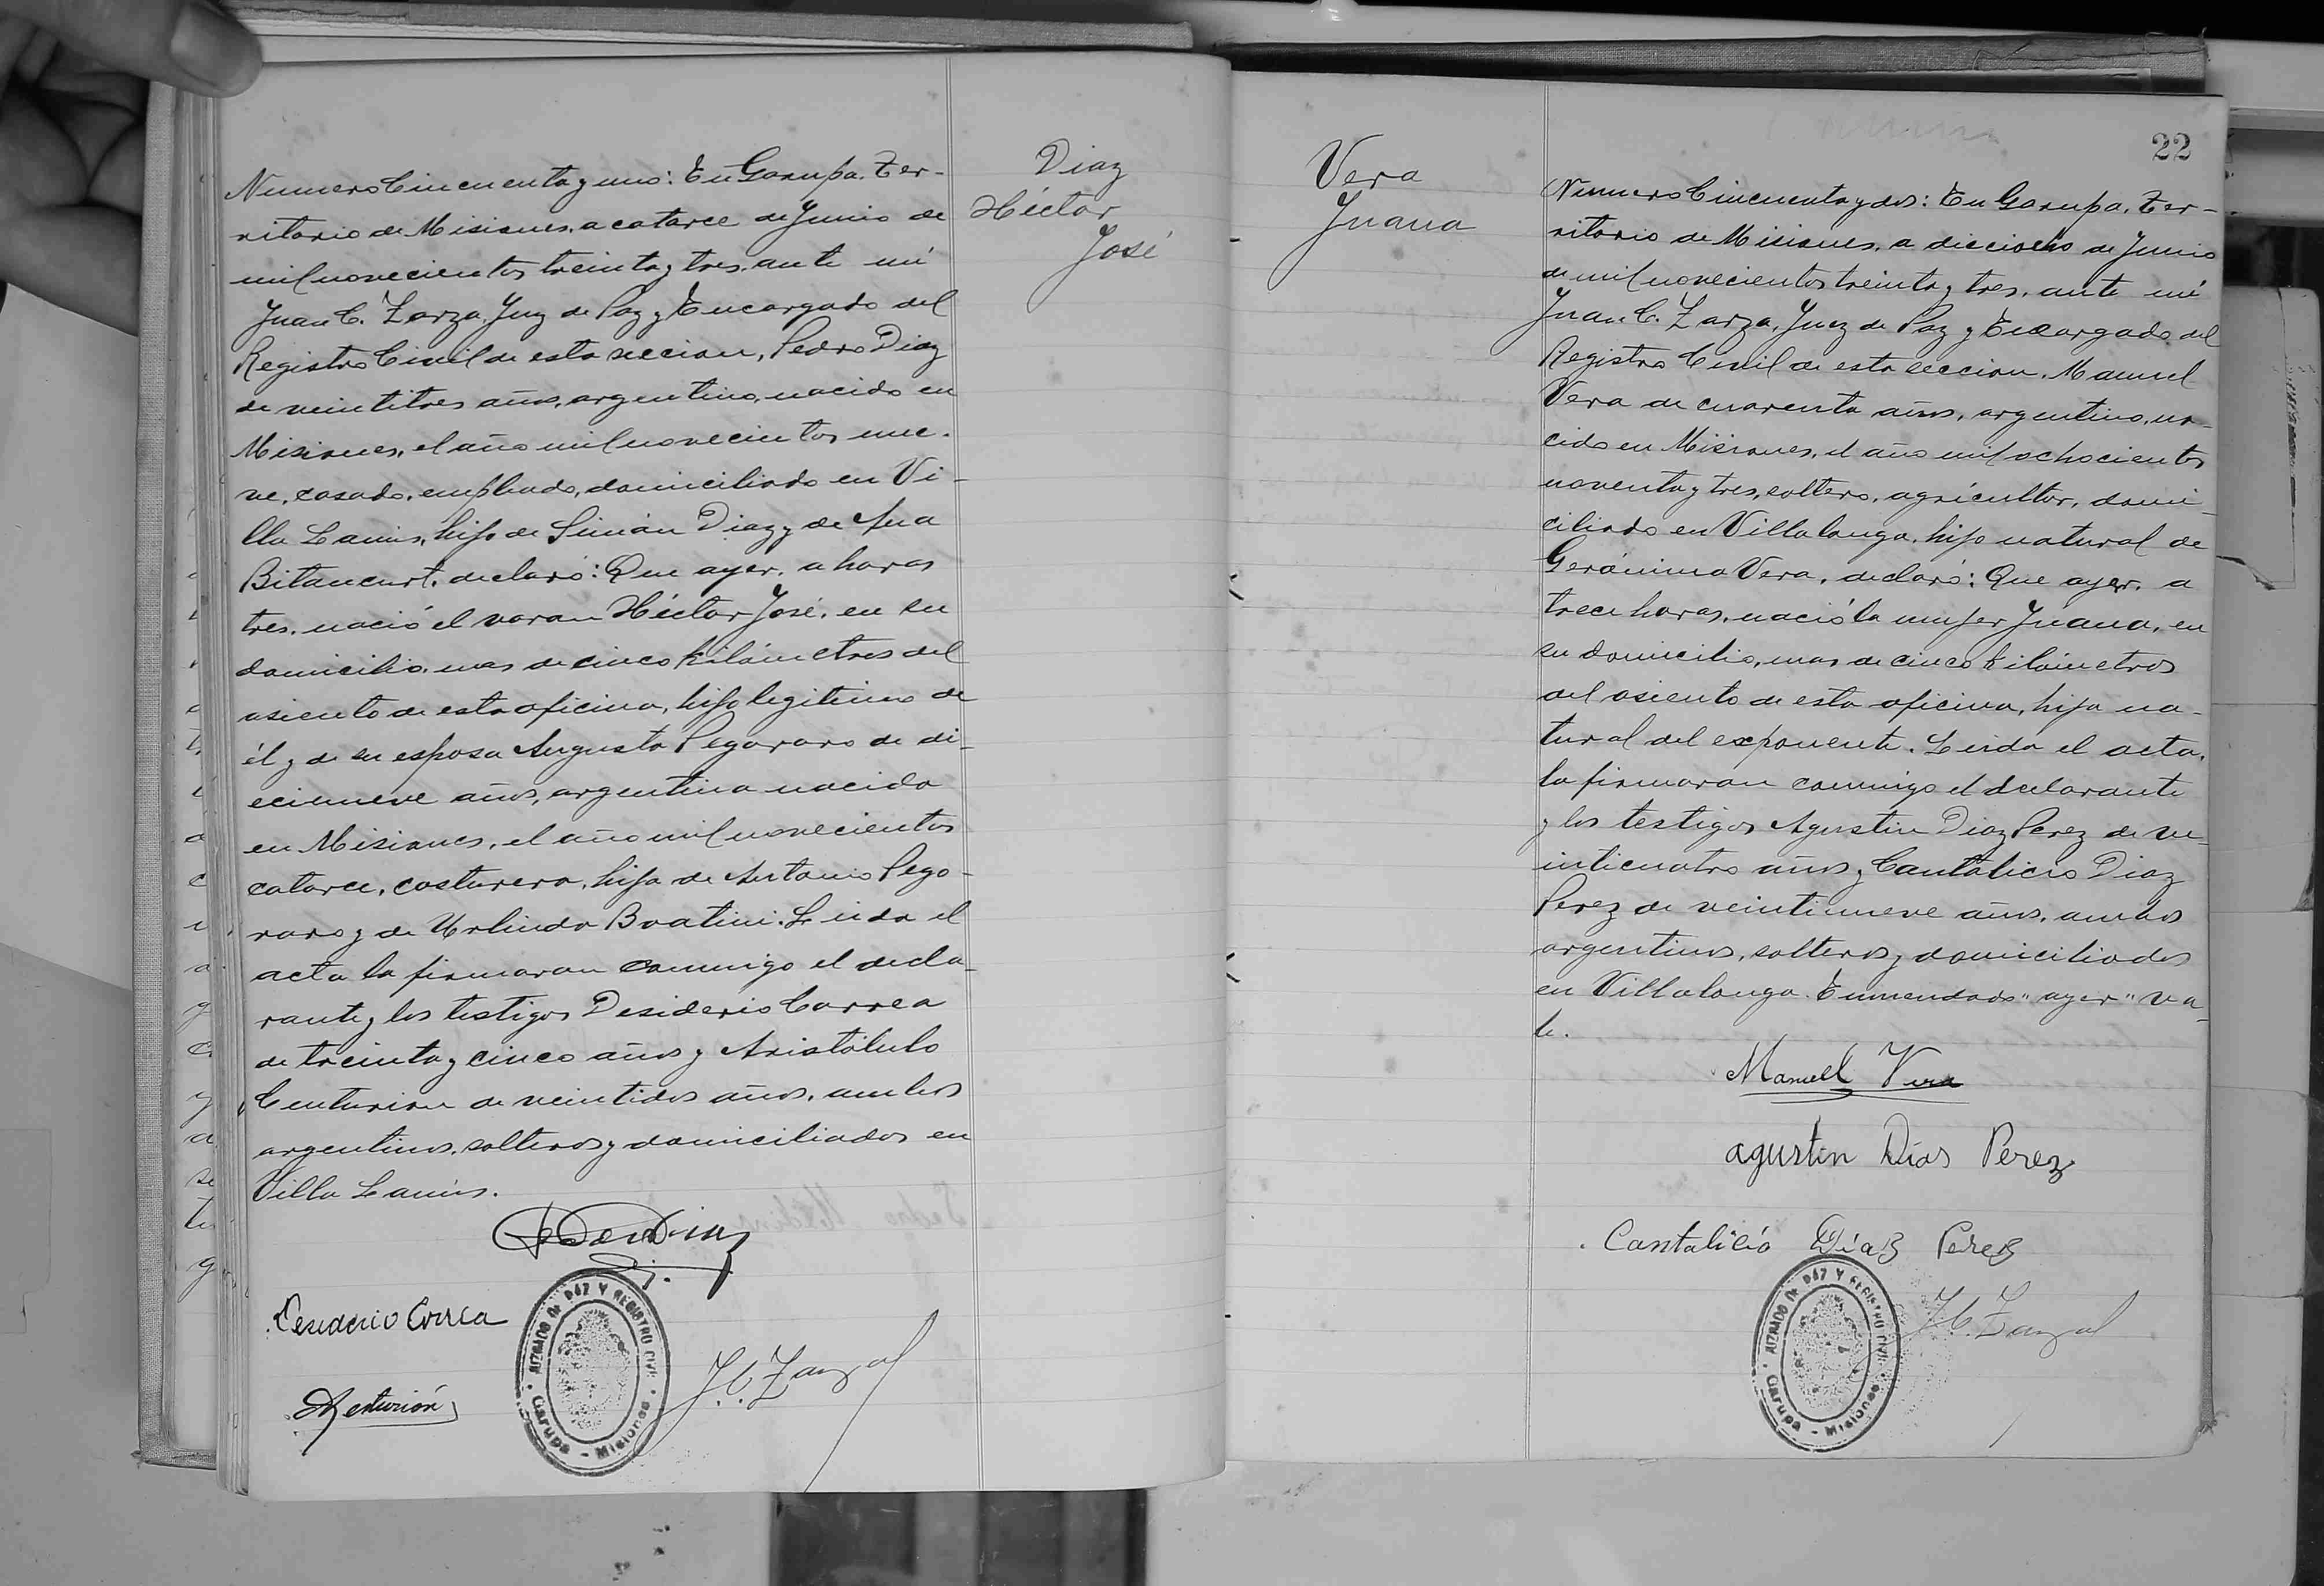 Diaz
Héctor
José
Numero Cincuenta y uno: En Garupa, Ter-
ritorio de Misiones, a catorce de Junio de
mil novecientos treinta y tres, ante mi
Juan C. Zarza, Juez de Paz y Encargado del
Registro Civil de esta seccion, Pedro Diaz
de veintitres años, argentino, nacido en
Misiones, el año mil novecientos nue-
ve, casado, empleado, domiciliado en Vi-
lla Lanus, hijo de Simón Diaz y de Ana
Bitancurt, declaró: Que ayer, a horas
tres, nació el varon Héctor José, en su
domicilio, mas de cinco kilómetros del
asiento de esta oficina, hijo legitimo de
él y de su esposa Augusta Pegoraro de di-
ecinueve años, argentina nacida
en Misiones, el año mil novecientos
catorce, costurera, hija de Antonio Pego-
raro y de Urlinda Boatini. Leida el
acta la firmaron conmigo el decla-
rante y los testigos Desiderio Correa
de treinta y cinco años y Aristóbulo
Centurion de veintidos años, ambos
argentinos, solteros y domiciliados en
Villa Lanus.
Desiderio Correa
JUZGADO DE PAZ Y REGISTRO CIVIL
Garupa - Misiones
J. C. Zarza
A Centurión
22
Vera
Juana
Numero Cincuenta y dos: En Garupa, Ter-
ritorio de Misiones, a dieciocho de Junio
de mil novecientos treinta y tres, ante mi
Juan C. Zarza, Juez de Paz y Encargado del
Registro Civil de esta seccion, Manuel
Vera de cuarenta años, argentino, na-
cido en Misiones, el año mil ochocientos
noventa y tres, soltero, agricultor, domi-
ciliado en Villalonga, hijo natural de
Gerónima Vera, declaró: Que ayer, a
trece horas, nació la mujer Juana, en
su domicilio, mas de cinco kilómetros
del asiento de esta oficina, hija na-
tural del exponente. Leida el acta,
la firmaron conmigo el declarante
y los testigos Agustin Diaz Perez de ve-
inticuatro años y Cantalicio Diaz
Perez de veintinueve años, ambos
argentinos, solteros y domiciliados
en Villalonga. Enmendado "ayer" va-
le.
Manuel Vera
agustin Dias Perez
Cantalicio Díaz Perez
JUZGADO DE PAZ Y REGISTRO CIVIL
Garupa - Misiones
J. C. Zarza